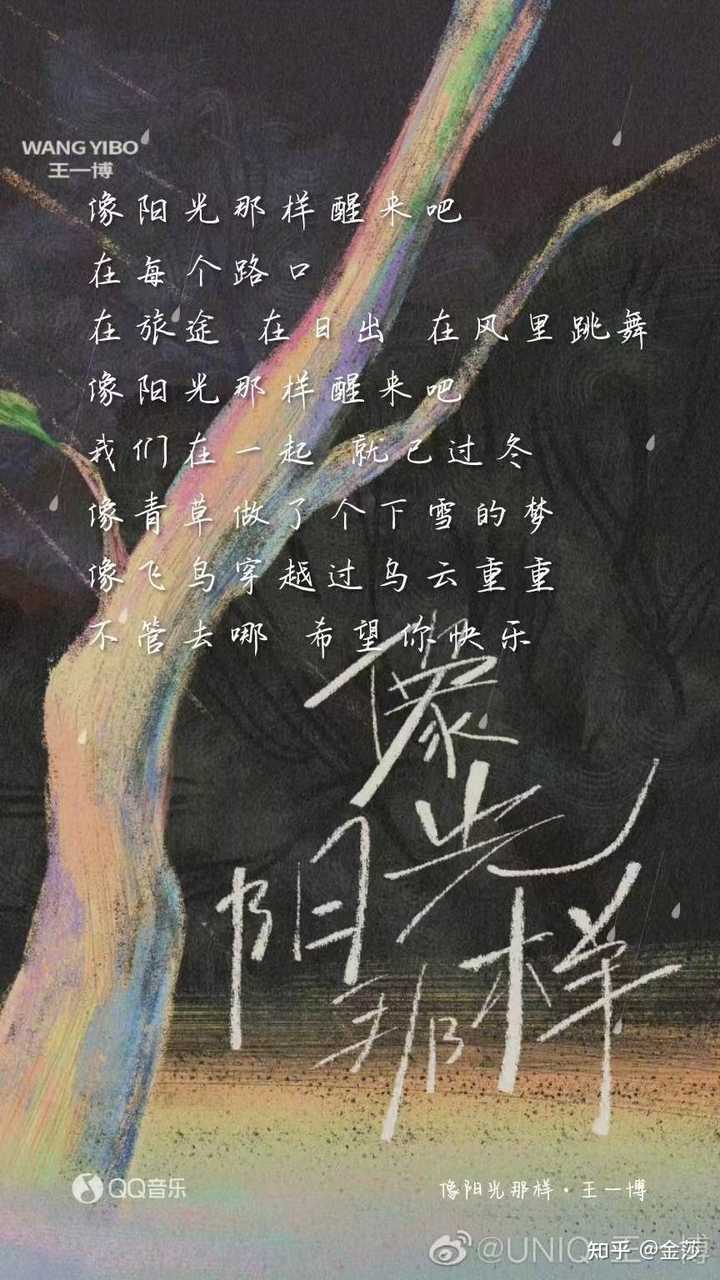 WANG YIBO
王一博
像阳光那样醒来吧
在每个路口
在旅途 在日出 在风里跳舞
像阳光那样醒来吧
我们在一起 就已过冬
像青草做了个下雪的梦
像飞鸟穿越过乌云重重
不管去哪 希望你快乐
像
阳光
那样
QQ音乐
像阳光那样·王一博
@UNIQ-王一博
知乎 @金莎